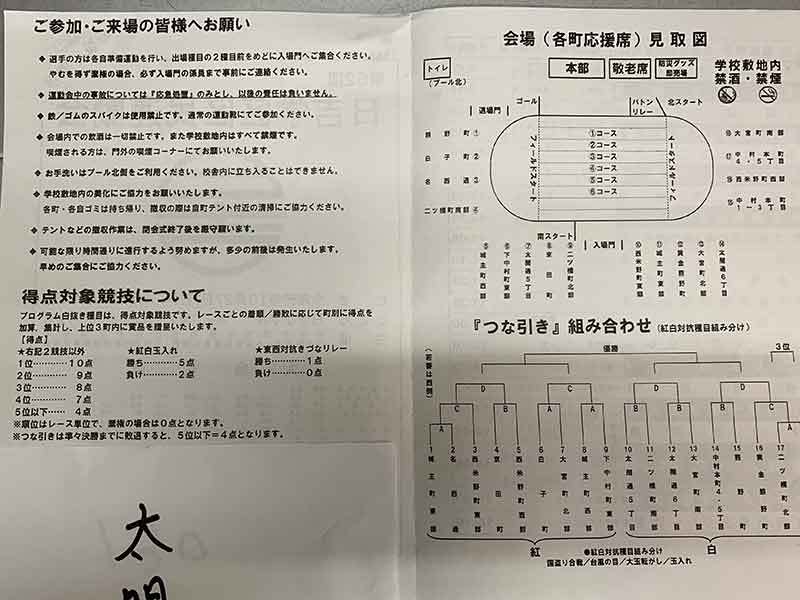 ご参加・ご来場の皆様へお願い
◆ 選手の方は各自準備運動を行い、出場種目の2種目前をめどに入場門へご集合ください。
やむを得ず棄権の場合、必ず入場門の係員まで事前にご連絡ください。
◆ 運動会中の事故については『応急処置』のみとし、以後の責任は負いません。
◆ 鉄/ゴムのスパイクは使用禁止です。通常の運動靴にてご参加ください。
◆ 会場内での飲酒は一切禁止です。また学校敷地内はすべて禁煙です。
喫煙される方は、門外の喫煙コーナーにてお願いいたします。
◆ お手洗いはプール北側をご利用ください。校舎内に立ち入ることはできません。
◆ 学校敷地内の美化にご協力をお願いいたします。
各町・各自ゴミは持ち帰り、撤収の際は自町テント付近の清掃にご協力ください。
◆ テントなどの撤収作業は、閉会式終了後を厳守願います。
◆ 可能な限り時間通りに進行するよう努めますが、多少の前後は発生いたします。
早めのご集合にご協力ください。
得点対象競技について
プログラム白抜き種目は、得点対象競技です。レースごとの着順/勝敗に応じて町別に得点を
加算、集計し、上位3町内に賞品を贈呈いたします。
【得点】
★右記2競技以外 ★紅白玉入れ ★東西対抗きづなリレー
1位…………10点 勝ち…………5点 勝ち…………1点
2位………… 9点 負け…………2点 負け…………0点
3位………… 8点
4位………… 7点
5位以下…… 4点
※順位はレース単位で、棄権の場合は0点となります。
※つな引きは準々決勝までに敗退すると、5位以下=4点となります。
太
会場(各町応援席)見取図
トイレ
(プール北)
本部 敬老席 防災グッズ
即売場
学校敷地内
禁酒・禁煙
退場門 ゴール バトン
リレー 北スタート
熊野町①
白子町②
名西通③
二ツ橋町南部④
①コース
②コース
③コース
④コース
⑤コース
⑥コース
フィールドスタート
⑱大宮町南部
⑰中村本町
4・5丁目
⑯西米野町西部
⑮中村本町
1~3丁目
南スタート
入場門
⑤城主町西部
⑥下中村町東部
⑦太閤通5丁目
⑧京田町
⑨二ツ橋町北部
⑩西米野町東部
⑪城主町東部
⑫黄金熊野町
⑬大宮町北部
⑭太閤通6丁目
『つな引き』組み合わせ(紅白対抗種目組み分け)
優勝
3位
(若番は西側)
D D
C B B C
A A A A
1 城主町東部
2 名西通
3 西米野町東部
4 京田町
5 西米野町西部
6 白子町
7 大宮町北部
8 城主町西部
9 下中村町東部
10 太閤通5丁目
11 二ツ橋町南部
12 太閤通6丁目
13 大宮町南部
14 中村本町4・5丁目
15 熊野町
16 黄金熊野町
17 二ツ橋町北部
紅 白
●紅白対抗種目組み分け
国盗り合戦/台風の目/大玉転がし/玉入れ